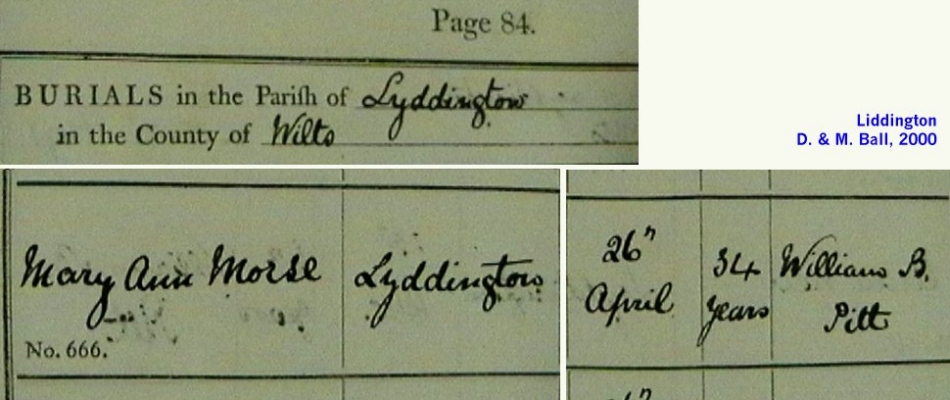 Page 84.
BURIALS in the Pariſh of Lyddington
in the County of Wilts
Liddington
D. & M. Ball, 2000
Mary Ann Morse
Lyddington
No. 666.
26"
April
34
years
William B.
Pitt